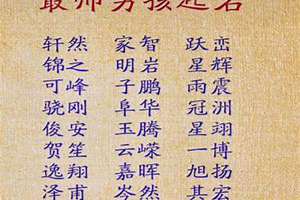 最帅男孩起名
轩然 家智 跃峦
锦之 明岩 星辉
可峰 子鹏 雨震
骁刚 阜华 冠洲
俊安 玉腾 星翊
贺笙 云嵘 一博
逸翔 嘉晖 旭扬
泽甫 岑然 其宏